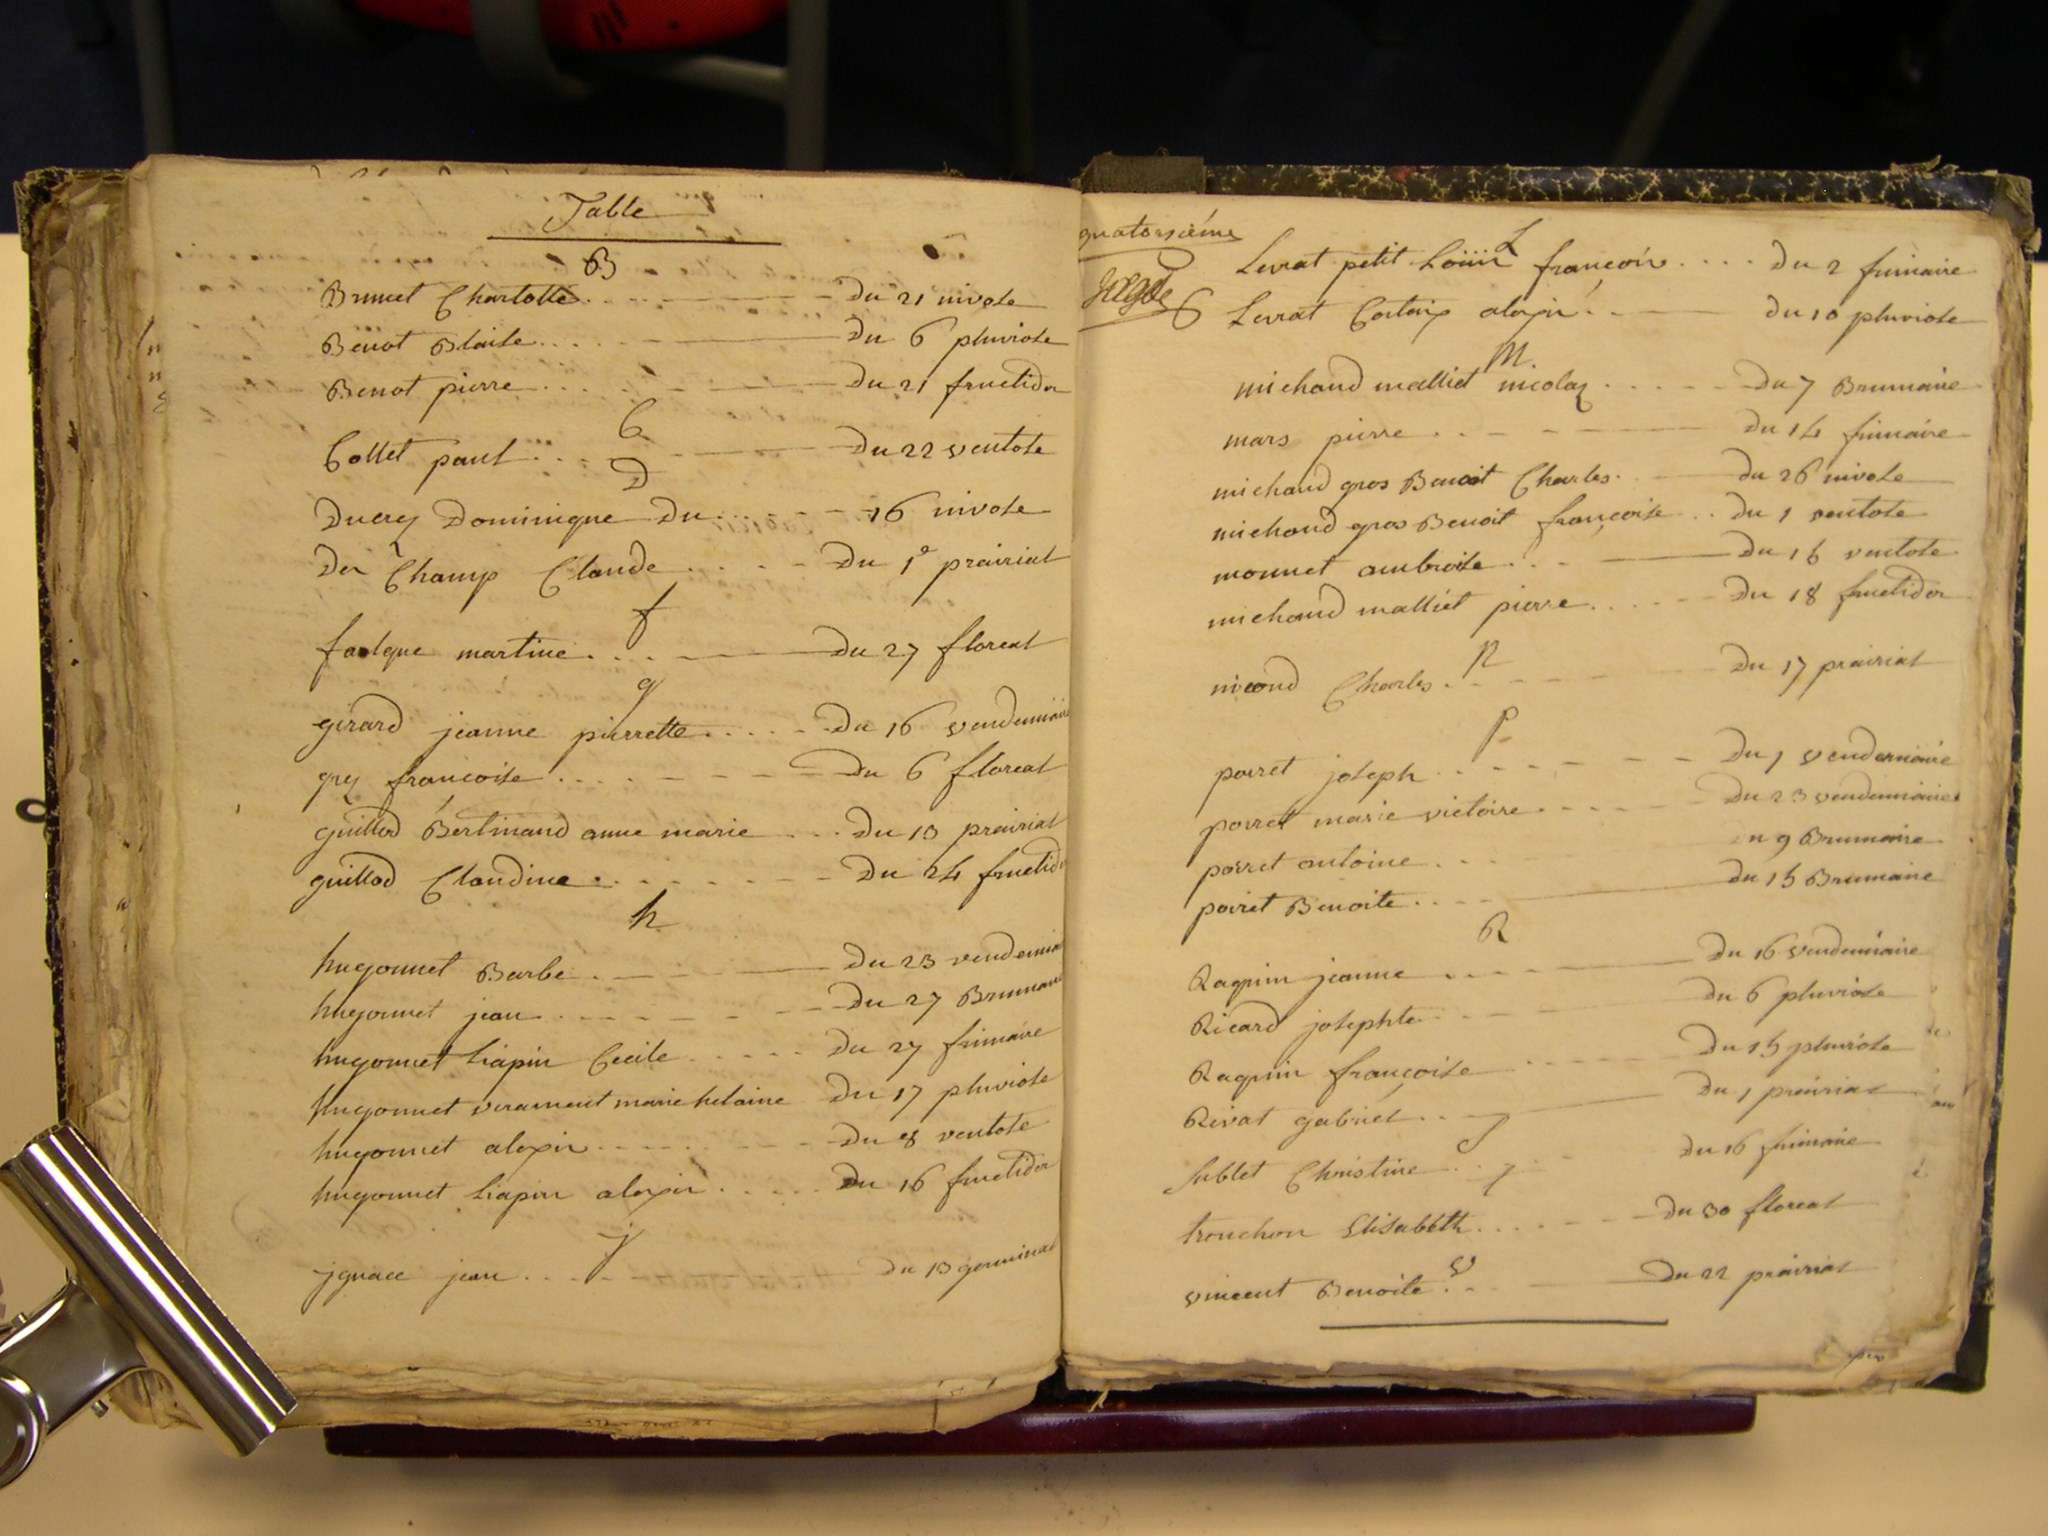 Table
B
Brunet Charlotte . . . . . . Du 21 nivose
Benot Blaise . . . . Du 6 pluviose
Benot pierre . . . . . . Du 21 fructidor
C
Collet paul . . . . Du 22 ventose
D
Ducrey Dominique Du . . . . 16 nivose
Der Champ Claude . . . . Du 1e prairial
f
falque martine . . . . Du 27 floreal
g
girard jeanne pierrette . . . . . Du 16 vendemiaire
grez francoise . . . . . . Du 6 floreal
guillod Bertinand anne marie . . . Du 13 prairial
guillod Claudine . . . . . . Du 24 fructidor
h
hugonnet Barbe . . . . Du 23 vendemiai
hugonnet jean . . . . . . Du 27 Brumaire
hugonnet liapin Cecile . . . . . Du 27 frimaire
hugonnet verament marie helaine Du 17 pluviose
hugonnet alexis . . . . . . Du 8 ventose
hugonnet liapin alexis . . . . . Du 16 fructidor
j
jgnace jean . . . . . Du 13 germinal
quatorzième
L
Levrat petit Loüis françois . . . . Du 2 frimaire
Levrat Costaix alexis . . . Du 10 pluviose
M.
michaud malliet nicolaz . . . . . Du 7 Brumaire
mars pierre . . . . Du 14 frimaire
michaud gros Benoit Charles . . Du 26 nivose
michaud gros Benoit françoise . . Du 1 ventose
monnet ambroise . . . Du 15 ventose
michaud malliet pierre . . . . . Du 18 fructidor
N
nicoud Charles . . . . . Du 17 prairial
P
poiret joseph . . . . . . Du 1 vendemiaire
poiret marie victoire . . . . . Du 23 vendemiaire
poiret antoine . . . u 9 Brumaire
poiret Benoite . . . . Du 15 Brumaire
R
Raquin jeanne . . . . Du 16 vendemiaire
Ricard josephte . . . . . Du 6 pluviose
Raquin françoise . . . . . Du 15 pluviose
Rivat gabriel . . . Du 1 prairial
S
Sublet Christine . . . . Du 16 frimaire
T
tronchon Elisabeth . . . . . . Du 30 floreal
V
vincent Benoite . . . Du 22 prairial